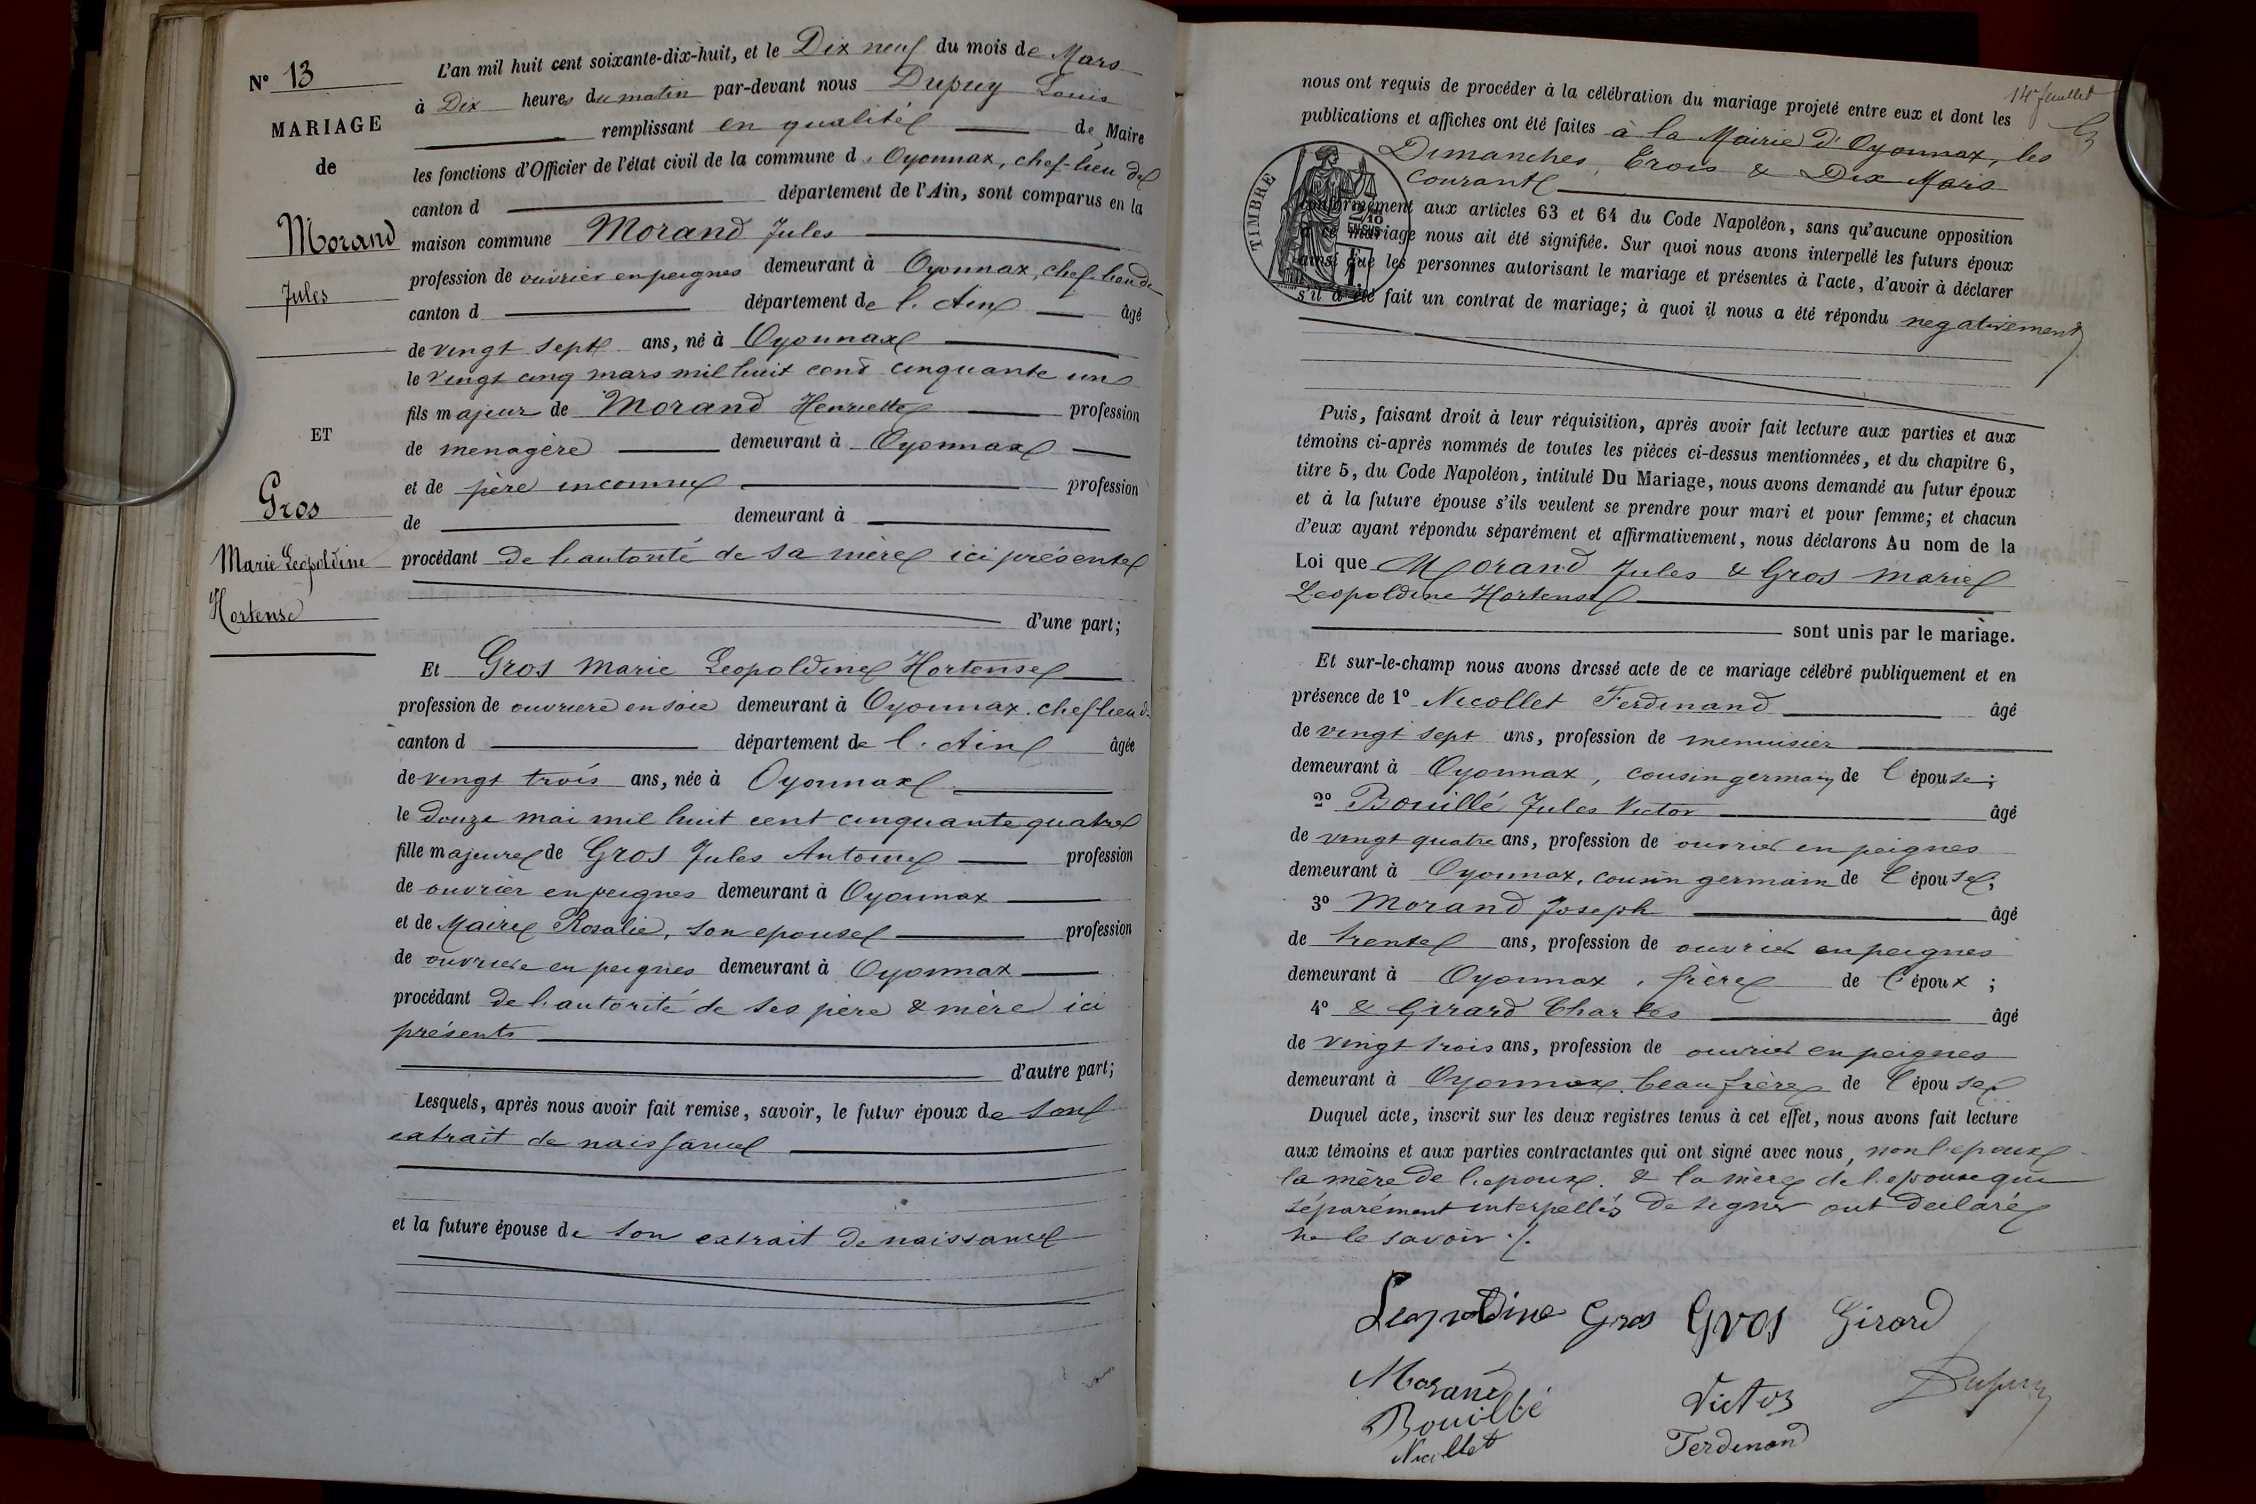 N° 13
MARIAGE
de
Morand
Jules
ET
Gros
Marie Leopoldine
Hortense
L'an mil huit cent soixante-dix-huit, et le Dix neuf du mois de Mars
à Dix heures du matin par-devant nous Dupuy Louis
remplissant en qualité de Maire
les fonctions d'Officier de l'état civil de la commune d'Oyonnax, chef-lieu de
canton d département de l'Ain, sont comparus en la
maison commune Morand Jules
profession de ouvrier en peignes demeurant à Oyonnax, chef-lieu de
canton d département de l'Ain âgé
de vingt sept ans, né à Oyonnax
le vingt cinq mars mil huit cent cinquante un
fils majeur de Morand Henriette profession
de menagère demeurant à Oyonnax
et de père inconnu profession
de demeurant à
procédant de l'autorité de sa mère ici présente
d'une part;
Et Gros Marie Leopoldine Hortense
profession de ouvriere en soie demeurant à Oyonnax. chef lieu de
canton d département de l'Ain âgée
de vingt trois ans, née à Oyonnax
le douze mai mil huit cent cinquante quatre
fille majeure de Gros Jules Antoine profession
de ouvrier en peignes demeurant à Oyonnax
et de Maire Rosalie, son epouse profession
de ouvriere en peignes demeurant à Oyonnax
procédant de l'autorité de ses père & mère ici
présents
d'autre part;
Lesquels, après nous avoir fait remise, savoir, le futur époux de son
extrait de naissance
et la future épouse de son extrait de naissance
14e feuillet
nous ont requis de procéder à la célébration du mariage projeté entre eux et dont les
publications et affiches ont été faites à la Mairie d'Oyonnax, les
Dimanches, Trois & Dix Mars
courant
TIMBRE
2/10 EN SUS
conformément aux articles 63 et 64 du Code Napoléon, sans qu'aucune opposition
à ce mariage nous ait été signifiée. Sur quoi nous avons interpellé les futurs époux
ainsi que les personnes autorisant le mariage et présentes à l'acte, d'avoir à déclarer
s'il a été fait un contrat de mariage; à quoi il nous a été répondu negativement
Puis, faisant droit à leur réquisition, après avoir fait lecture aux parties et aux
témoins ci-après nommés de toutes les pièces ci-dessus mentionnées, et du chapitre 6,
titre 5, du Code Napoléon, intitulé Du Mariage, nous avons demandé au futur époux
et à la future épouse s'ils veulent se prendre pour mari et pour femme; et chacun
d'eux ayant répondu séparément et affirmativement, nous déclarons Au nom de la
Loi que Morand Jules & Gros Marie
Leopoldine Hortense
sont unis par le mariage.
Et sur-le-champ nous avons dressé acte de ce mariage célébré publiquement et en
présence de 1° Nicollet Ferdinand âgé
de vingt sept ans, profession de menuisier
demeurant à Oyonnax, cousin germain de l'épouse;
2° Bouillé Jules Victor âgé
de vingt quatre ans, profession de ouvrier en peignes
demeurant à Oyonnax, cousin germain de l'épouse;
3° Morand Joseph âgé
de trente ans, profession de ouvrier en peignes
demeurant à Oyonnax, frère de l'époux;
4° & Girard Charles âgé
de vingt trois ans, profession de ouvrier en peignes
demeurant à Oyonnax, beau frère de l'épouse
Duquel acte, inscrit sur les deux registres tenus à cet effet, nous avons fait lecture
aux témoins et aux parties contractantes qui ont signé avec nous, non l'epoux
la mère de l'epoux. & la mère de l'epouse qui
séparément interpellés de signer ont declaré
ne le savoir ./.
Leopoldine Gros Gros Girard
Morand
Bouillé Victor Dupuy
Nicollet Ferdinand